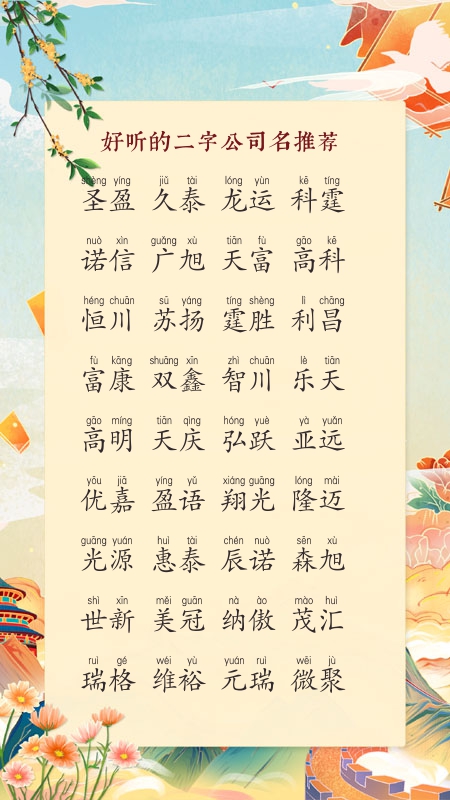 好听的二字公司名推荐
shèng yíng jiǔ tài lóng yùn kē tíng
圣盈 久泰 龙运 科霆
nuò xìn guǎng xù tiān fù gāo kē
诺信 广旭 天富 高科
héng chuān sū yáng tíng shèng lì chāng
恒川 苏扬 霆胜 利昌
fù kāng shuāng xīn zhì chuān lè tiān
富康 双鑫 智川 乐天
gāo míng tiān qìng hóng yuè yà yuǎn
高明 天庆 弘跃 亚远
yōu jiā yíng yǔ xiáng guāng lóng mài
优嘉 盈语 翔光 隆迈
guāng yuán huì tài chén nuò sēn xù
光源 惠泰 辰诺 森旭
shì xīn měi guān nà ào mào huì
世新 美冠 纳傲 茂汇
ruì gé wéi yù yuán ruì wēi jù
瑞格 维裕 元瑞 微聚